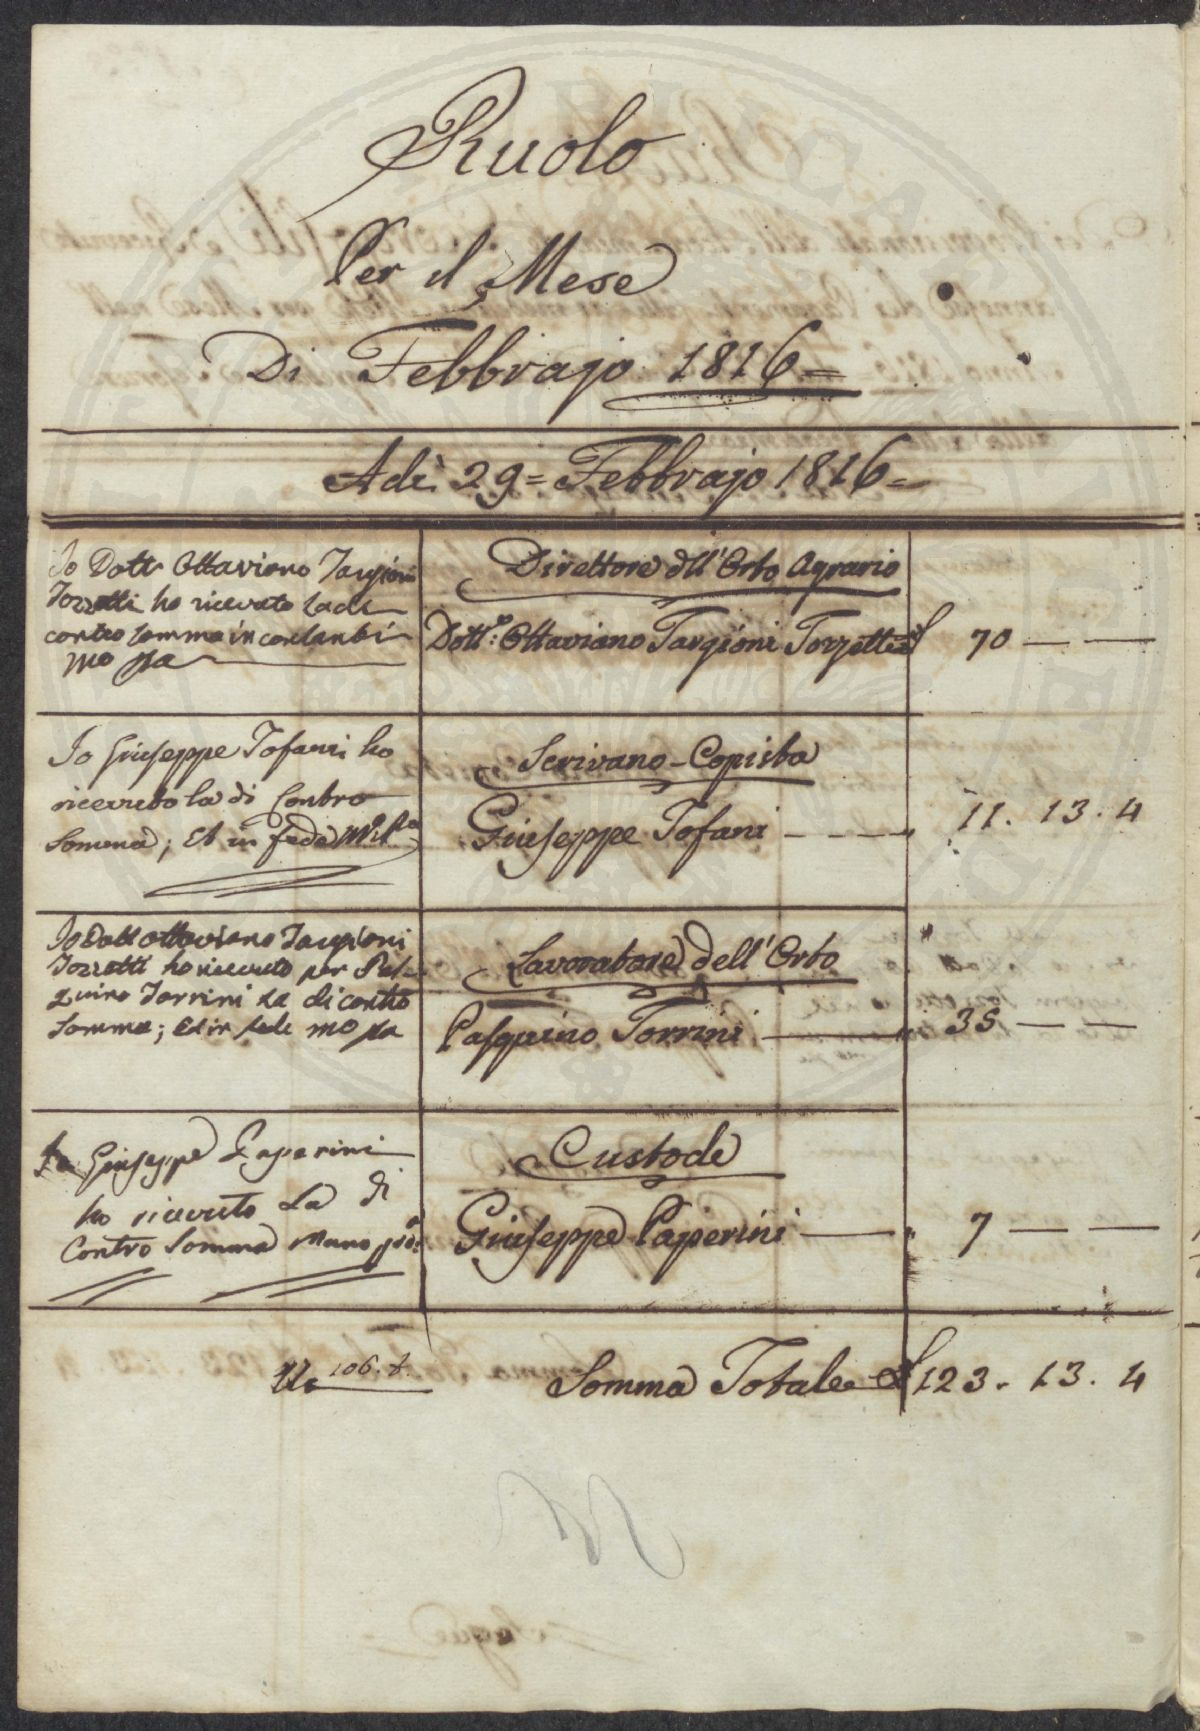 Ruolo
Per il Mese
Di Febbrajo 1816=
Adì 29= Febbrajo 1816=
Io Dottr Ottaviano Targioni
Tozzetti ho ricevuto la di
contro somma in contanti
mo pa
Direttore dll' Orto Agrario
Dott.o: Ottaviano Targioni Tozzetti £ 70 — —
Io Giuseppe Tofani ho
ricevuto la di Contro
Somma; Et in fede
Scrivano-Copista
Giuseppe Tofani - - - 11. 13. 4
Io Dott Ottaviano Targioni
Tozzetti ho ricevuto per Pas-
quino Torrini la di contro
Somma; Ed in fede mo pa
Lavoratore dell' Orto
Pasquino Torrini — 35 — —
Io Giuseppe Paperini
ho ricevuto La di
Contro Somma Mano pro:a
Custode
Giuseppe Paperini — 7 — —
106. t.
Somma Totale £ 123. 13. 4